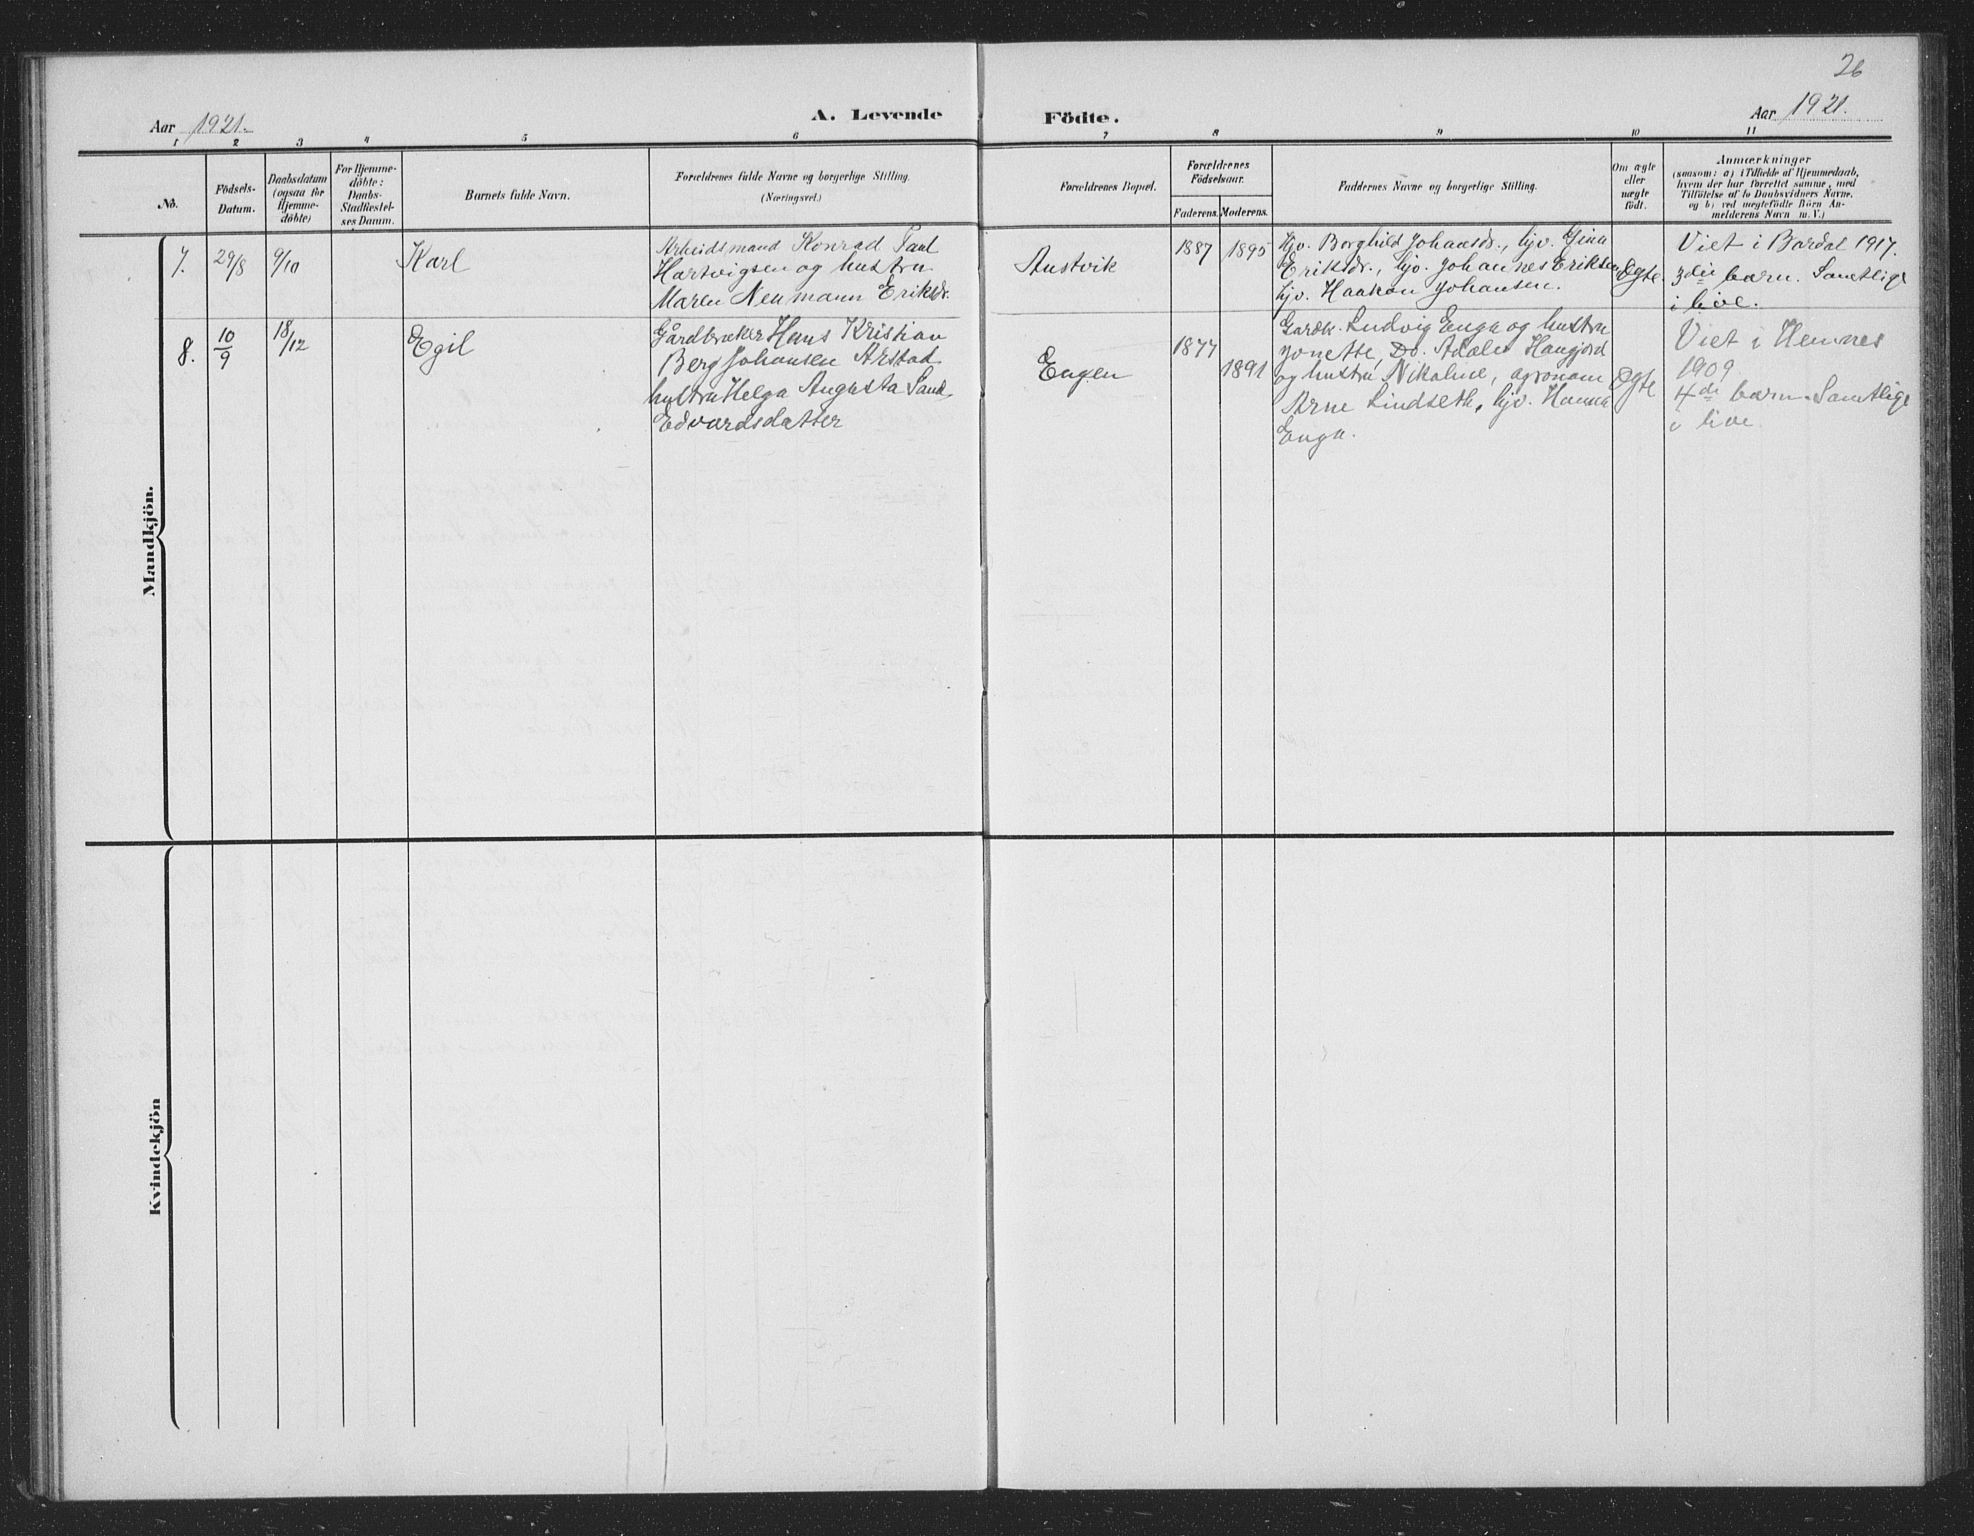 26
Aar 1921.
A. Levende
Födte.
Aar 1921.
1 2 3 4 5 6 7 8 9 10 11
No.
Födsels-
Datum.
Daabsdatum
(ogsaa for
Hjemme-
døbte)
For Hjemme-
døbte:
Daabs-
Stadfæstel-
ses Datum.
Barnets fulde Navn.
Forældrenes fulde Navne og borgerlige Stilling.
(Næringsvei.)
Forældrenes Bopæl.
Forældrenes
Födselsaar.
Faderens. Moderens.
Faddernes Navne og borgerlige Stilling.
Om ægte
eller
uægte
födt.
Anmærkninger
(saasom: a) i Tilfælde af Hjemmedaab,
hvem der har forrettet samme, med
Tilföielse af to Daabsvidners Navne,
og b) ved uægtefödte Börn An-
melderens Navn m. V.)
Mandkjön.
7.
29/8
9/10
Karl
Arbeidsmand Konrad Paul
Hartvigsen og hustru
Maren Neumann Eriksdr.
Austvik
1887
1895
Hjv. Borghild Johansdr., hjv. Gina
Eriksdr., hjv. Johannes Eriksen
hjv. Haakon Johansen.
Ægte.
Viet i Bardal 1917.
3die barn. Samtlige
i live.
8.
10/9
18/12
Egil
Gårdbruker Hans Kristian
Berg Johansen Arstad
hustru Helga Augusta Sand
Edvardsdatter
Engen
1877
1891
Gardb. Ludvig Enga og hustru
Jonette, Do. Adäler Haugjord
og hustru Nikoline, agronom
Arne Lindseth, hjv. Hanna
Enga.
Ægte
Viet i Hemnes
1909
4de barn. Samtlige
i live.
Kvindekjön